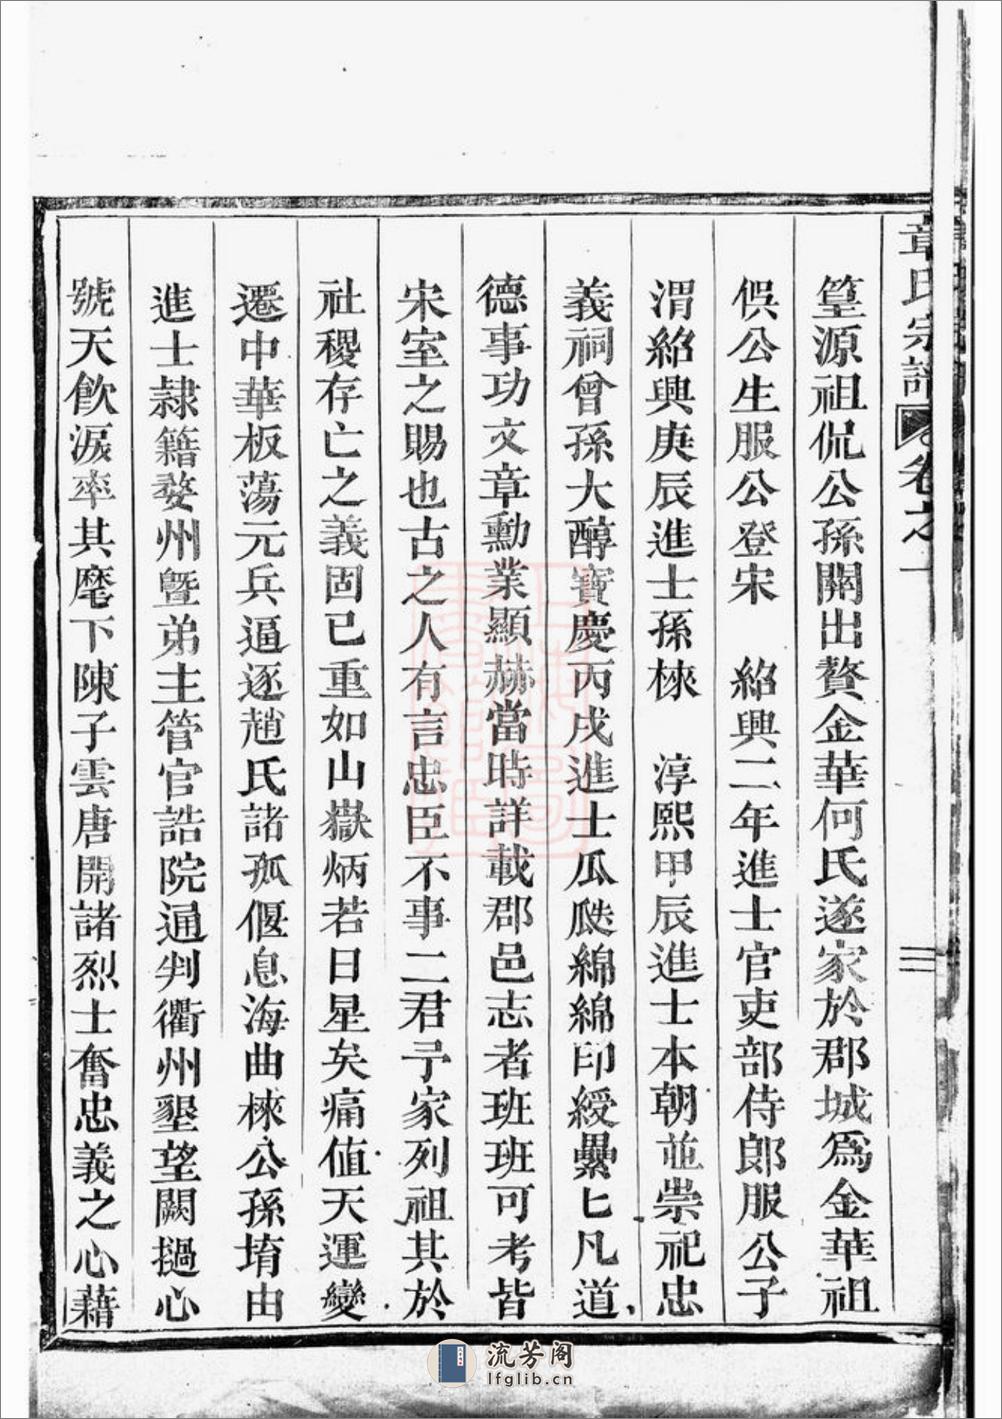 章氏宗譜 卷之一 二
篁源祖侃公孫關出贅金華何氏遂家於郡城爲金華祖
俁公生服公登宋 紹興二年進士官吏部侍郎服公子
渭紹興庚辰進士孫棶 淳熙甲辰進士本朝並崇祀忠
義祠曾孫大醇寶慶丙戌進士瓜瓞綿綿印綬纍匕凡道
德事功文章勳業顯赫當時詳載郡邑志者班班可考皆
宋室之賜也古之人有言忠臣不事二君予家列祖其於
社稷存亡之義固已重如山嶽炳若日星矣痛值天運變
遷中華板蕩元兵逼逐趙氏諸孤偃息海曲棶公孫堉由
進士隷籍婺州曁弟主管官誥院通判衢州墾望闕撾心
號天飲淚率其麾下陳子雲唐開諸烈士奮忠義之心藉
流芳阁
lfglib.cn